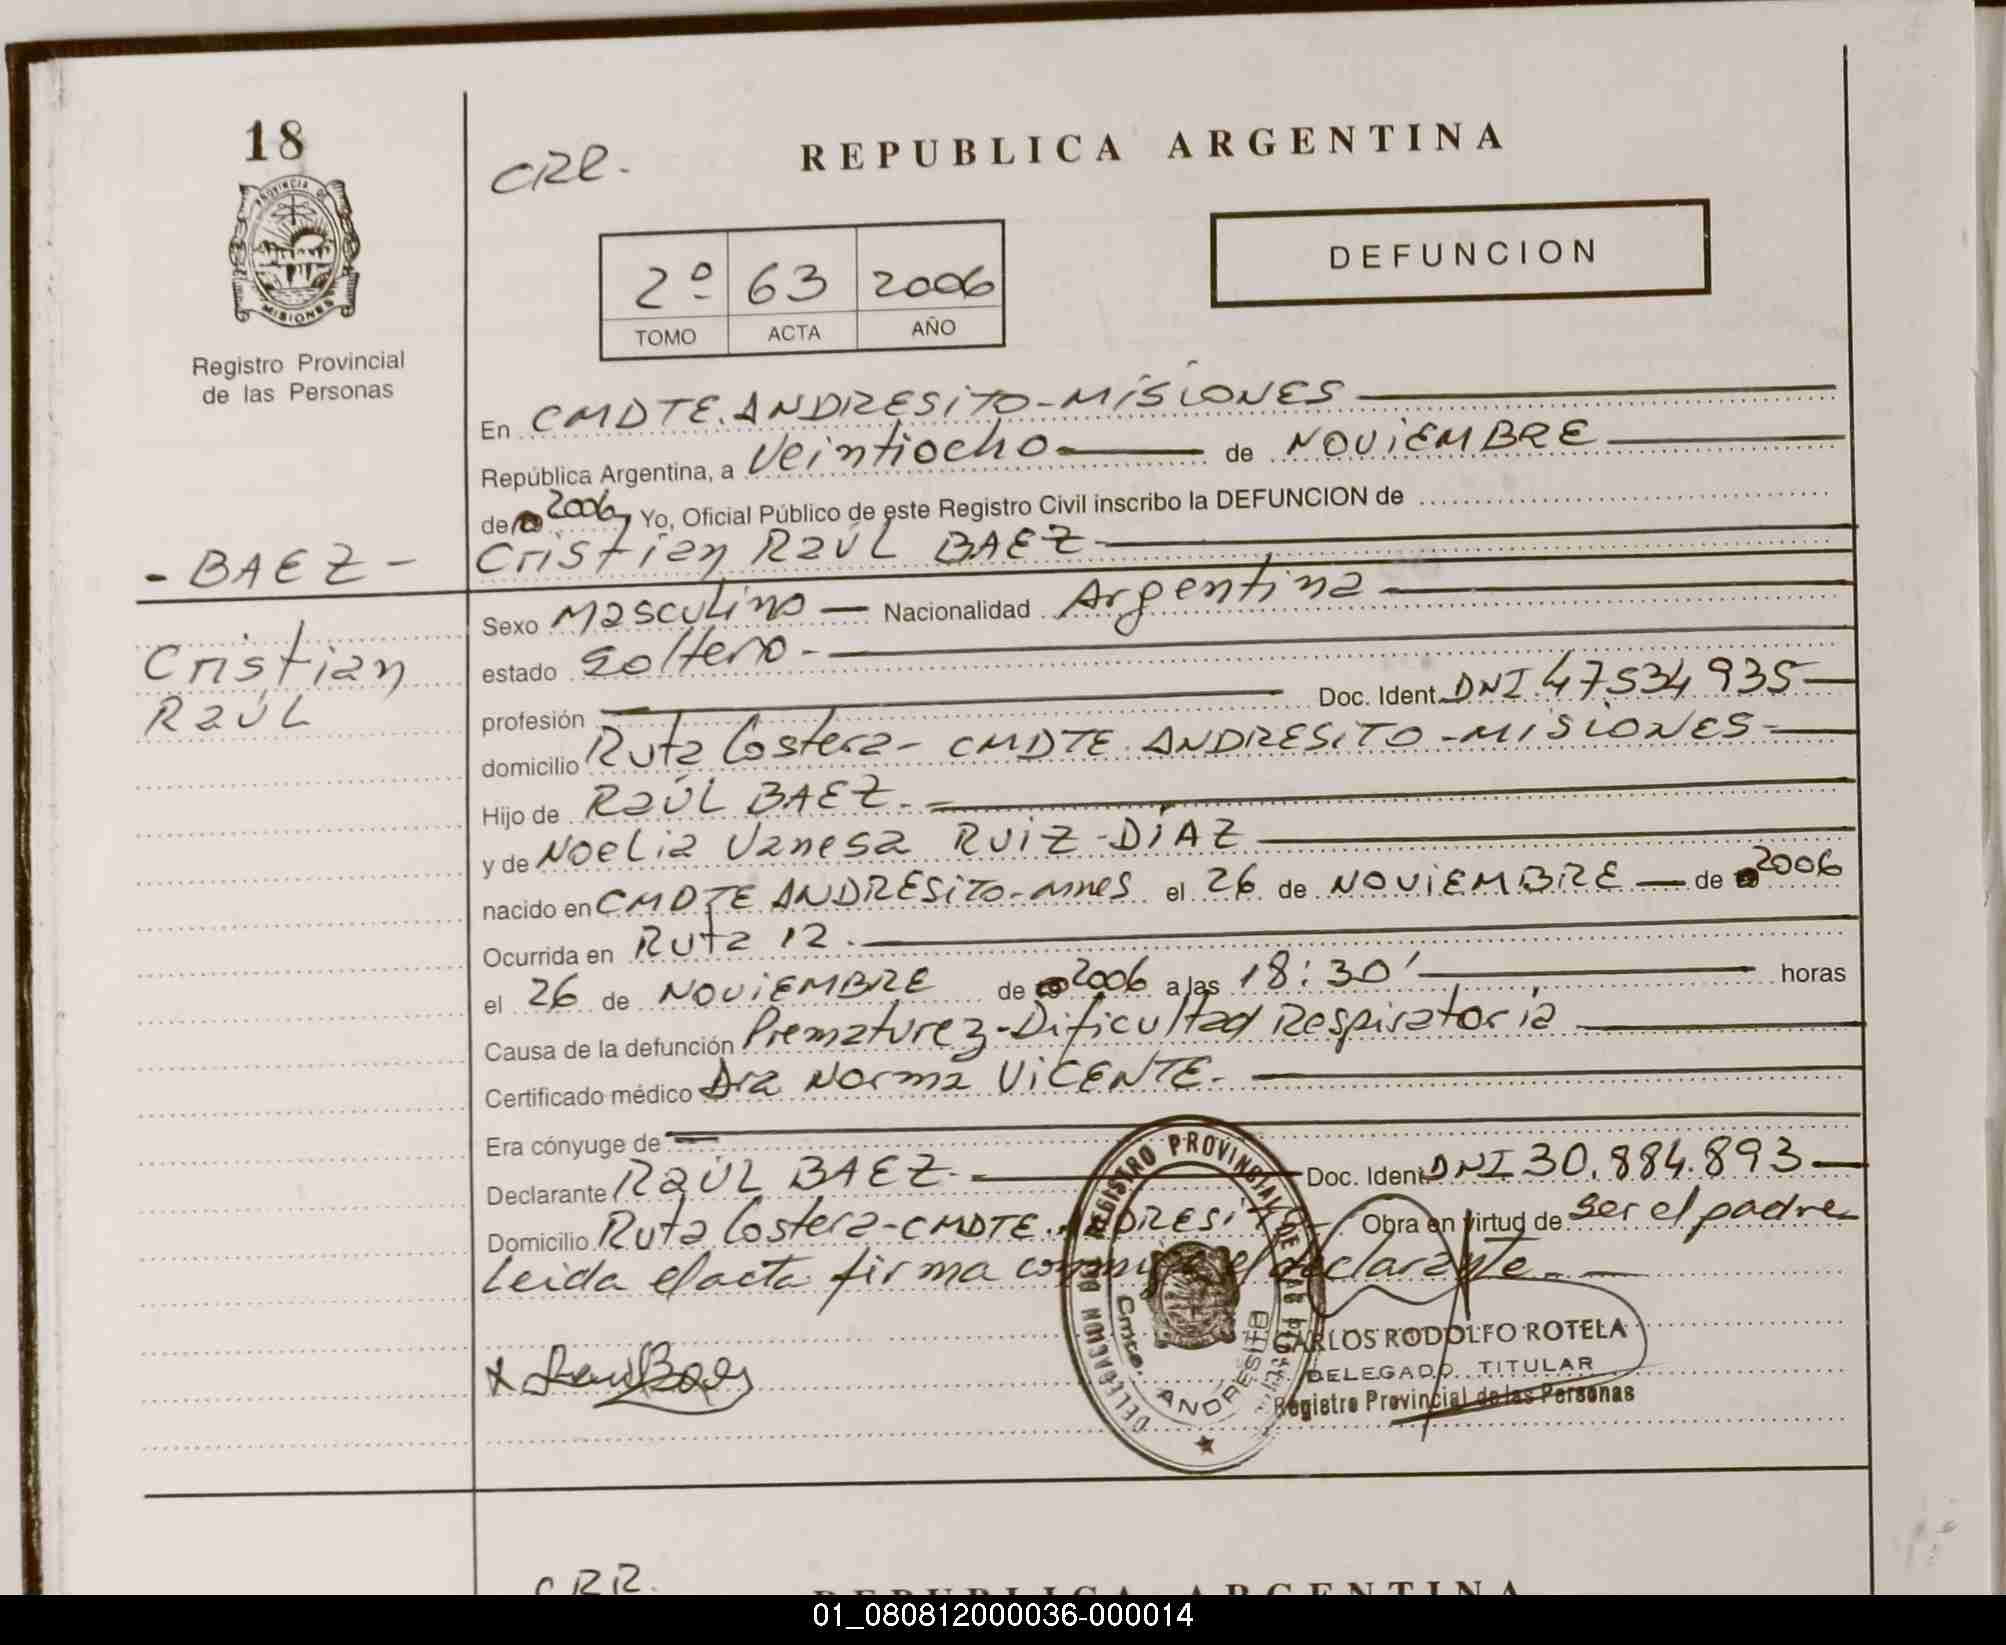 18
PROVINCIA DE
MISIONES
Registro Provincial
de las Personas
CRR.
REPUBLICA ARGENTINA
2º 63 2006
TOMO ACTA AÑO
DEFUNCION
En CMDTE. ANDRESITO-MISIONES
República Argentina, a Veintiocho de NOVIEMBRE
de 2006 Yo, Oficial Público de este Registro Civil inscribo la DEFUNCION de
- BAEZ - Cristian Raúl BAEZ
Cristian
Raúl
Sexo Masculino Nacionalidad Argentina
estado Soltero -
profesión Doc. Ident. DNI 47534935
domicilio Ruta Costera - CMDTE ANDRESITO - MISIONES -
Hijo de Raúl BAEZ. -
y de Noelia Vanesa RUIZ-DIAZ
nacido en CMDTE ANDRESITO-Mnes el 26 de NOVIEMBRE de 2006
Ocurrida en Ruta 12.
el 26 de NOVIEMBRE de 2006 a las 18:30' horas
Causa de la defunción Prematurez-Dificultad Respiratoria
Certificado médico Dra Norma VICENTE.
Era cónyuge de
Declarante Raúl BAEZ. Doc. Ident DNI 30.884.893
Domicilio Ruta Costera-CMDTE. ANDRESITO Obra en virtud de ser el padre
Leida el acta firma conmigo el declarante. -
x Raul Baez
DELEGACION DEL REGISTRO PROVINCIAL DE LAS
Cmte. ANDRESITO
CARLOS RODOLFO ROTELA
DELEGADO TITULAR
Registro Provincial de las Personas
CRR.
REPUBLICA ARGENTINA
01_080812000036-000014